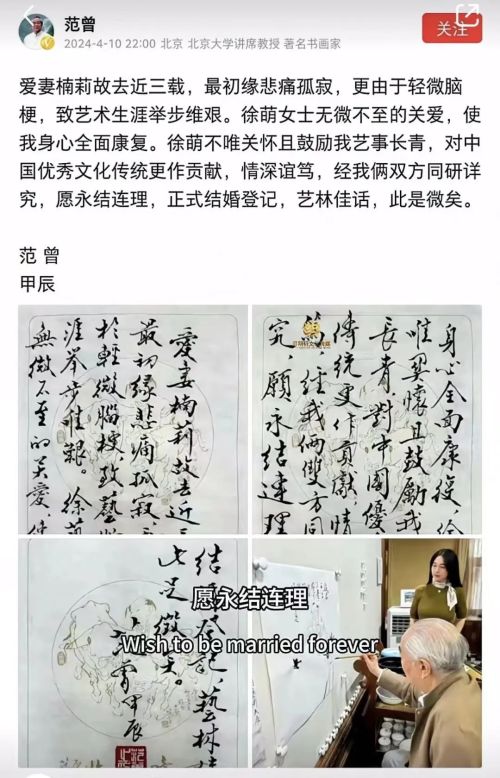 范曾
关注
2024-4-10 22:00 北京 北京大学讲席教授 著名书画家
爱妻楠莉故去近三载，最初缘悲痛孤寂，更由于轻微脑
梗，致艺术生涯举步维艰。徐萌女士无微不至的关爱，使
我身心全面康复。徐萌不唯关怀且鼓励我艺事长青，对中
国优秀文化传统更作贡献，情深谊笃，经我俩双方同研详
究，愿永结连理，正式结婚登记，艺林佳话，此是微矣。
范 曾
甲辰
愛妻楠莉故去近三
最初緣悲痛孤寂，更
於輕微腦梗，致藝術
涯舉步維艱。徐萌
無微不至的关愛，使
身心全面康復，徐
唯関懷且鼓勵我
長青，對中國優
傳統更作貢獻，情
篤，經我倆雙方同
究，願永结連理
结婚登記，藝林佳
此是微矣。
甲辰
愿永结连理
Wish to be married forever